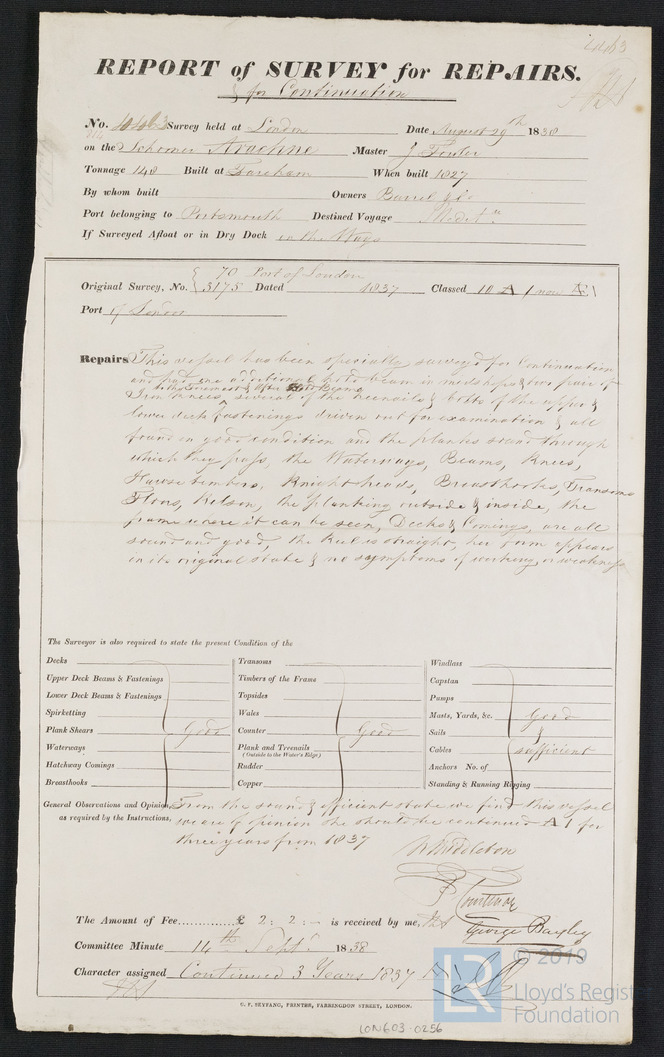 REPORT of SURVEY for REPAIRS.
& for Continuation
No. Survey held at London Date August 29th 1838
on the Schooner Arachne Master J Fowler
Tonnage 148 Built at Fareham When built 1827
By whom built Owners Burril & Co
Port belonging to Portsmouth Destined Voyage Meditn
If Surveyed Afloat or in Dry Dock on the Ways
70 Port of London
Original Survey, No. 3175 Dated 1837 Classed 10 A 1 now Æ1
Port of London
Repairs This vessel has been specially surveyed for Continuation
and had one additional hold beam in midships & two pair of
Iron knees, several of the treenails & bolts of the upper &
lower deck fastenings driven out for examination & all
found in good condition and the planks sound through
which they pass, the Waterways, Beams, Knees,
Hawse timbers, Knight heads, Breasthooks, Transoms
Floors, Kelson, the planking outside & inside, the
frame where it can be seen, Decks & Comings, are all
sound and good, the Keel is straight, her form appears
in its original state & no symptoms of working or weakness
The Surveyor is also required to state the present Condition of the
Decks
Upper Deck Beams & Fastenings
Lower Deck Beams & Fastenings
Spirketting
Plank Shears Good
Waterways
Hatchway Comings
Breasthooks
Transoms
Timbers of the Frame
Topsides
Wales
Counter Good
Plank and Treenails
(Outside to the Water's Edge)
Rudder
Copper
Windlass
Capstan
Pumps
Masts, Yards, &c. Good
Sails &
Cables sufficient
Anchors No. of
Standing & Running Rigging
General Observations and Opinion, From the sound & efficient state we find this vessel
as required by the Instructions, we are of opinion she should be continued A 1 for
three years from 1837
W Middleton
P Courtenay
The Amount of Fee £ 2: 2: - is received by me,
George Bayley
Committee Minute 14th Septr 1838
Character assigned Continued 3 Years 1837 A1
© 2019
LR
Lloyd's Register
Foundation
C. F. SEYFANG, PRINTER, FARRINGDON STREET, LONDON.
LON603-0256